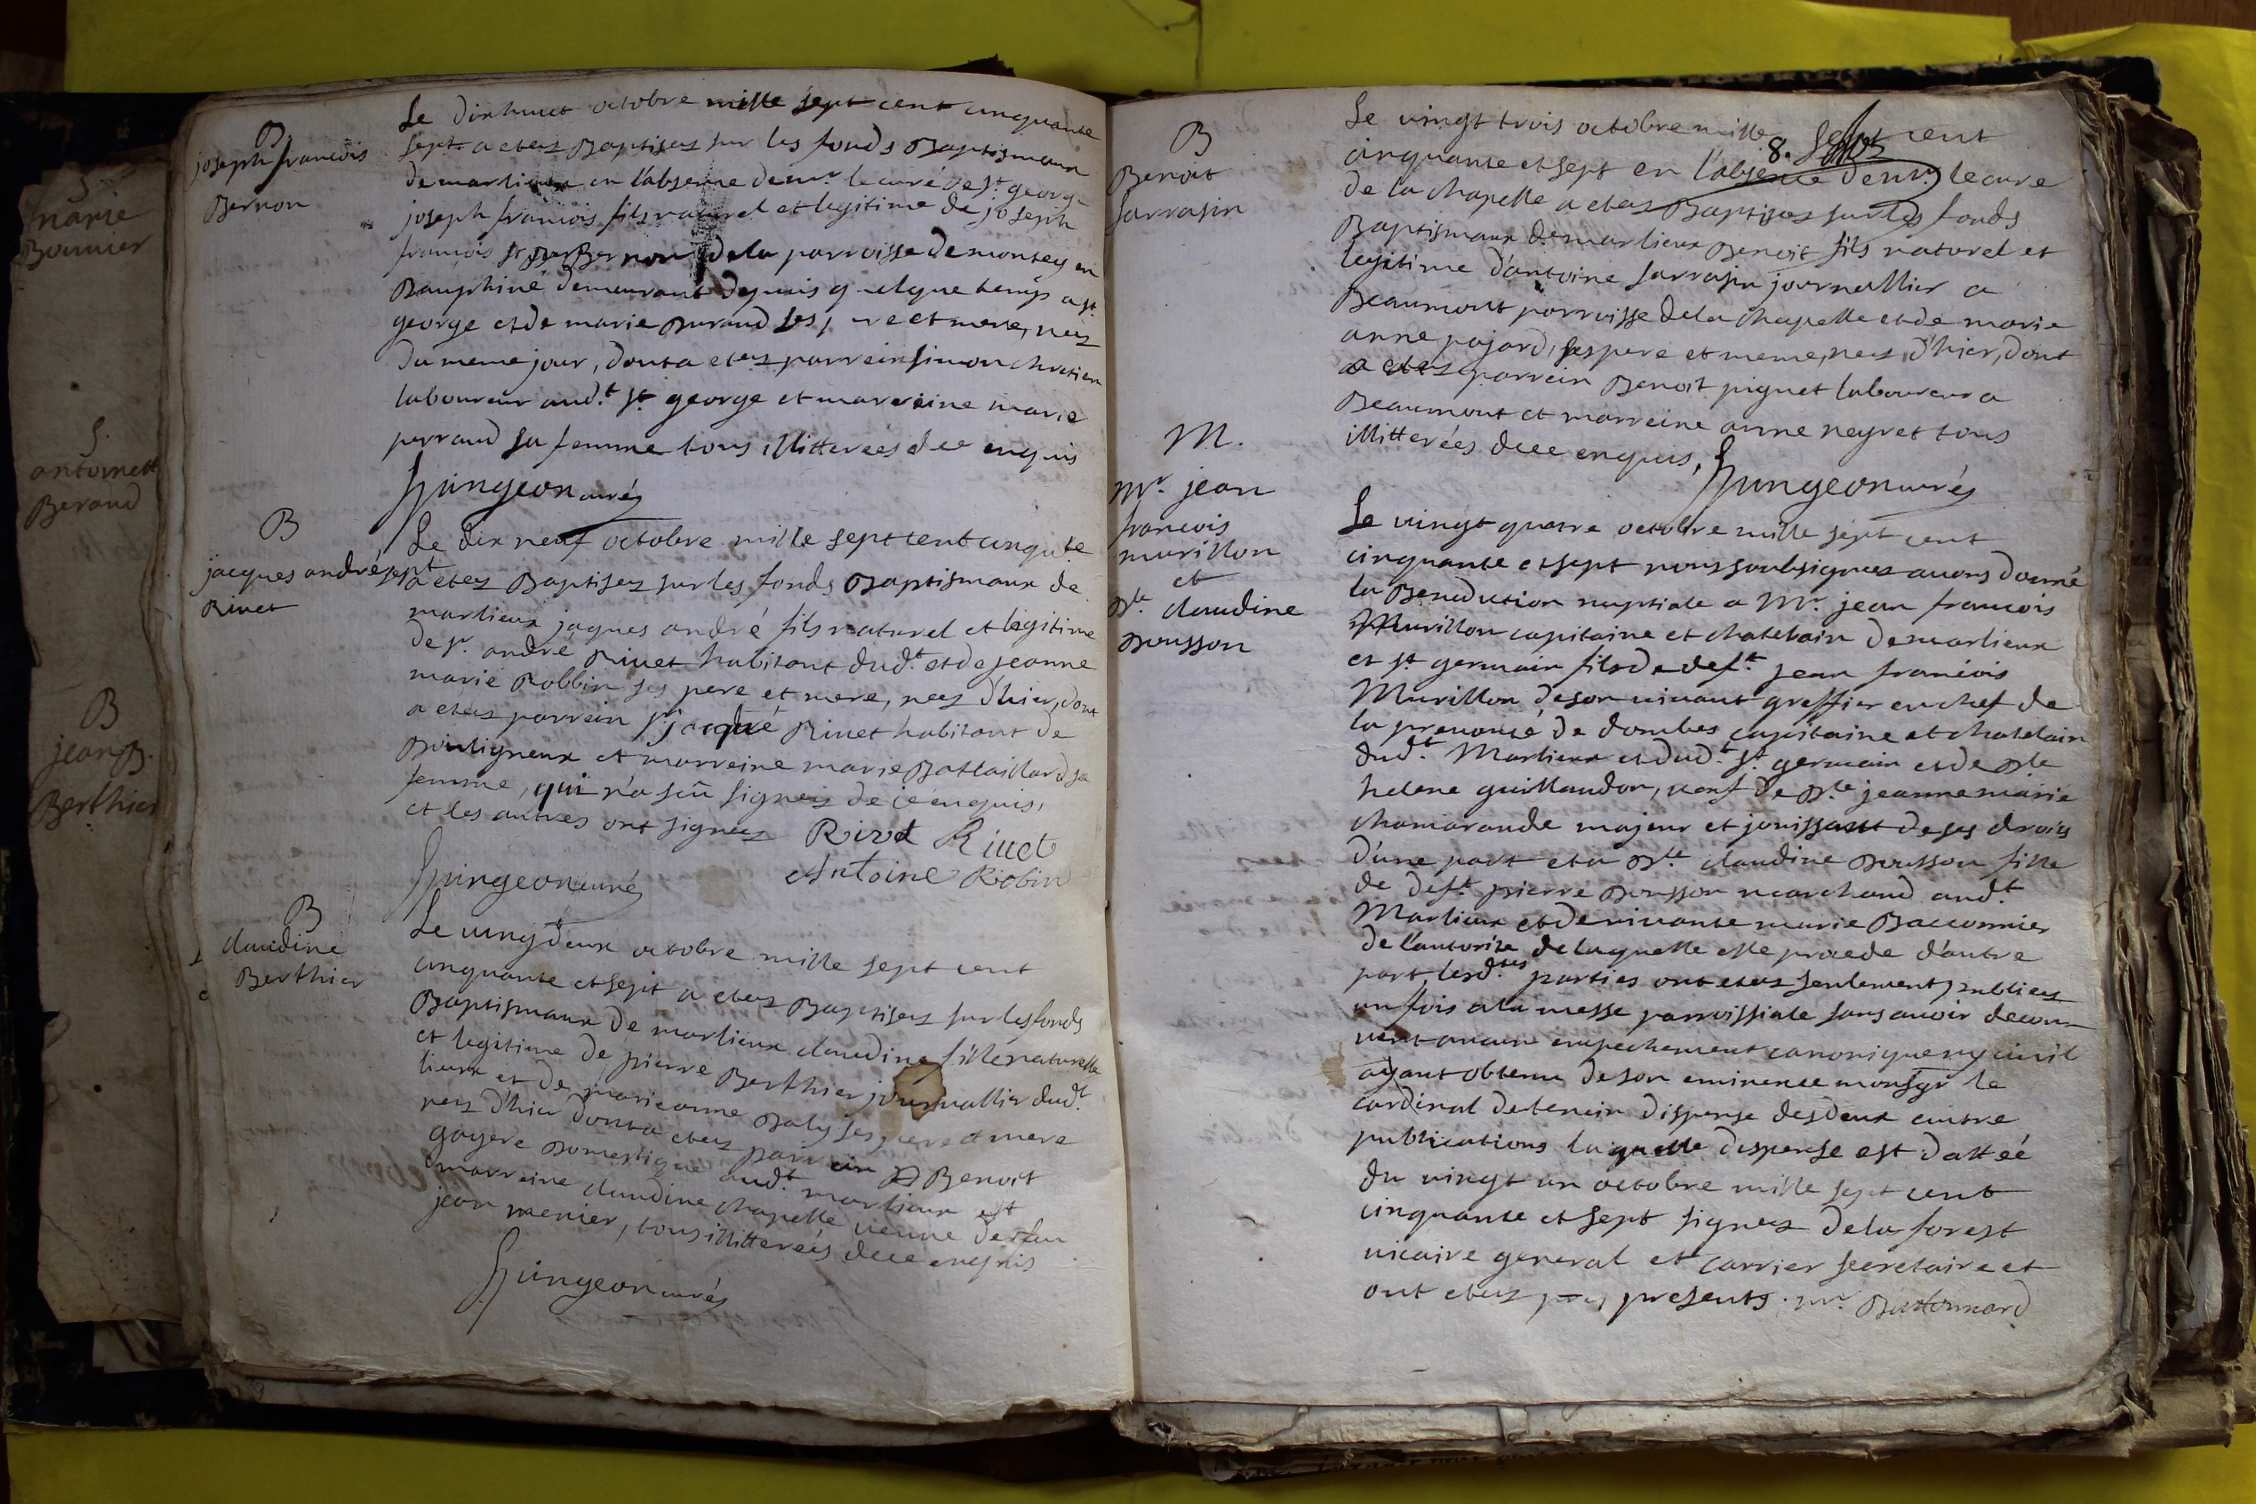 marie
Bonnier
S.
antoinett
Beraud
B
jean B.
Berthier
B
joseph francois
Bernon
Le dixhuict octobre mille sept cent cinquante
sept a etez Baptisez sur les fonds Baptismaux
de marlieux en l'absence de mr. le curé de st. george
joseph francois fils naturel et legitime de joseph
francois Bernon de la parroisse de montey en
Dauphiné demeurant depuis quelque temps a st.
george et de marie Durand ses pere et mere, nez
du meme jour, dont a etez parrein simon chretien
laboureur aud.t st. george et marreine marie
perraud sa femme tous illitterées de ce enquis
Gringeon curéz
B
jacques andré
Rivet
Le dix neuf octobre mille sept cent cinqute
sept a etez Baptisez sur les fonds Baptismaux de
marlieux jaques andré fils naturel et legitime
de sr. andré Rivet habitant dud.t et de jeanne
marie Robbin ses pere et mere, nez d'hier, dont
a etez parrein sr. jacque Rivet habitant de
Bouligneux et marreine marie Battaillard sa
femme, qui n'a scû signez de ce enquis,
et les autres ont signez Rivet Rivet
Gringeon curé Antoine Robin
B
claudine
Berthier
Le vingtdeux octobre mille sept cent
cinquante et sept a etez Baptisez sur les fonds
Baptismaux de marlieux claudine fille naturelle
et legitime de pierre Berthier journallier dud.t
lieux et de marie anne Baly ses pere et mere
nez d'hier dont a etez parrein Benoit
goyere Domestique aud.t marlieux et
marreine claudine chapelle veuve de feu
jean menier, tous illitterées de ce enquis
Gringeon curéz
B
Benoit
Sarrasin
8.
Le vingt trois octobre mille sept cent
cinquante et sept en l'absence de mr. le curé
de la chapelle a etez Baptisez sur les fonds
Baptismaux de marlieux Benoit fils naturel et
legitime d'antoine Sarrasin journallier a
Beaumont parroisse de la chapelle et de marie
anne pajard, ses pere et meme, nez d'hier, dont
a etez parrein Benoit piguet laboureur a
Beaumont et marreine anne neyret tous
illitterées de ce enquis,
Gringeon curéz
M.
Mr. jean
francois
murillon
et
Dlle. claudine
Dousson
Le vingt quatre octobre mille sept cent
cinquante et sept nous soubsignez avons donné
la Benediction nuptiale a Mr. jean francois
Murillon capitaine et chatelain de marlieux
et st. germain fils de def.t jean francois
Murillon de son vivant greffier en chef de
la prevoté de dombes capitaine et chatelain
dud.t Marlieux et dud.t st. germain et de Dlle
helene guillaudon, veuf de Dlle jeanne marie
chamarande majeur et jouissant de ses droits
d'une part et a Dlle. claudine Dousson fille
de def.t pierre Dousson marchand aud.t
Marlieux et de vivante marie Baconnier
de l'autorité de laquelle elle procede d'autre
part, lesd.tes parties ont etez seulement publiez
un fois a la messe parroissiale sans avoir decou-
vert aucun empechement canonique ny civil
ayant obtenu de son eminence monsgr le
cardinal de tencin dispense des deux autre
publications laquelle dispense est dattée
du vingt un octobre mille sept cent
cinquante et sept signez de la forest
vicaire general et carrier secretaire et
ont etez presents mr.